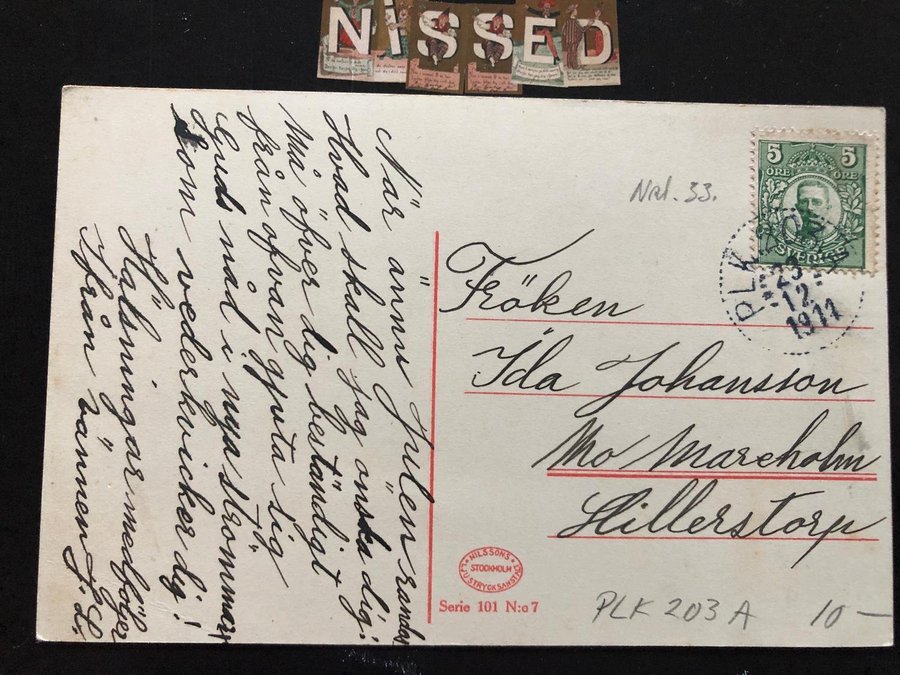 NISSED
När ännu Julen randas
Hvad skall jag önska dig?
Må öfver dig beständigt
från ofvan gjuta sig
Guds nåd i nya strömmar
Som vederkvicker dig!
Hälsningar medföljer
ifrån vännen J. L.
Nrl. 33.
5 5
ÖRE ÖRE
SVERIGE
PLK 203 A
23
12
1911
Fröken
Ida Johansson
Mo Mareholm
Hillerstorp
NILSSONS
STOCKHOLM
LJUSTRYCKSANSTALT
Serie 101 N:o 7
PLK 203 A
10 —